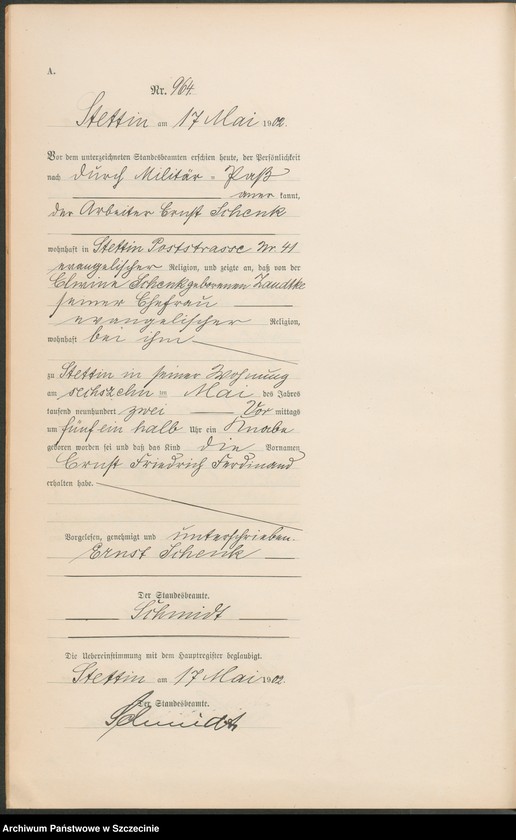 A.
Nr. 964
Stettin am 17 Mai 1902.
Vor dem unterzeichneten Standesbeamten erschien heute, der Persönlichkeit
nach durch Militär = Paß
aner kannt,
der Arbeiter Ernst Schenk
wohnhaft in Stettin Poststrasse Nr. 41
evangelischer Religion, und zeigte an, daß von der
Schenk geborenen Zandtke
seiner Ehefrau
evangelischer Religion,
wohnhaft bei ihm
zu Stettin in seiner Wohnung
am sechszehn ten Mai des Jahres
tausend neunhundert zwei Vor mittags
um fünf ein halb Uhr ein Knabe
geboren worden sei und daß das Kind die Vornamen
Ernst Friedrich Ferdinand
erhalten habe.
Vorgelesen, genehmigt und unterschrieben.
Ernst Schenk
Der Standesbeamte.
Schmidt
Die Uebereinstimmung mit dem Hauptregister beglaubigt.
Stettin am 17 Mai 1902
Der Standesbeamte.
Schmidt
Archiwum Państwowe w Szczecinie